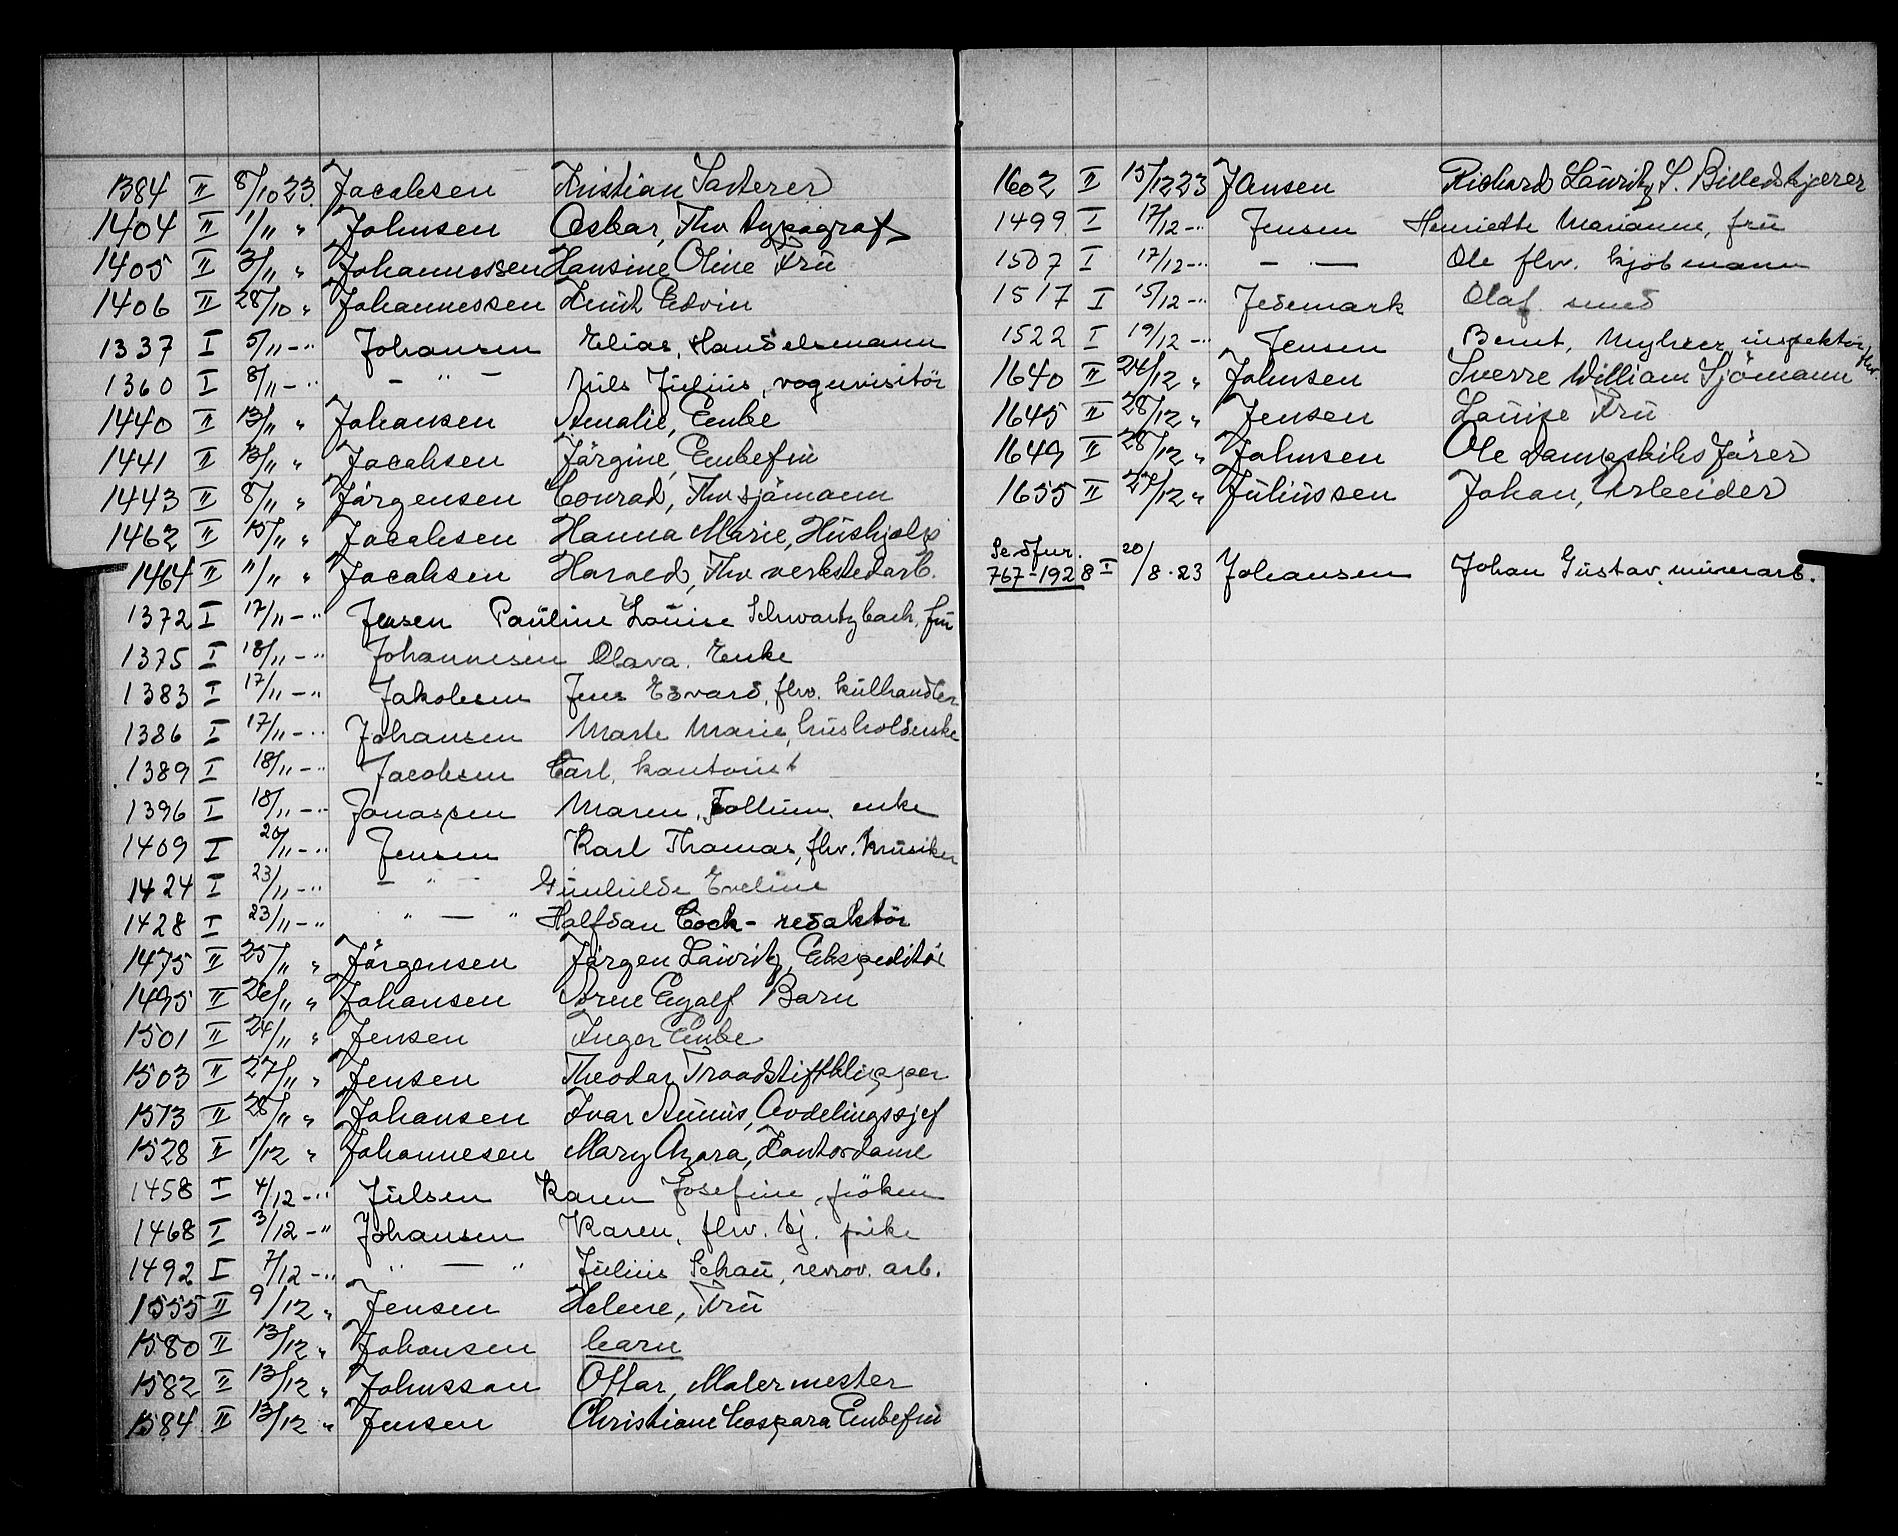 1384 II 8/10 23. Jacobsen Kristian Sorterer
1404 II 1/11 " Johnsen Oskar, Fhv typograf
1405 II 3/11 " Johannessen Hansine Oline Fru
1406 II 28/10 " Johannessen Knut Edvin
1337 I 5/11 -" Johansen Elias, Handelsmann
1360 I 8/11 -" - " - Nils Julius, vognvisitör
1440 II 13/11 " Johansen Amalie, Enke
1441 II 13/11 " Jacobsen Jörgine, Enkefru
1443 II 8/11 " Jörgensen Conrad, Fhv sjömann
1462 II 15/11 " Jacobsen Hanna Marie, Hushjelp
1464 II 11/11 " Jacobsen Harald, Fhv verkstedarb.
1372 I 17/11 -" Jensen Pauline Louise Schwartzbach, fru
1375 I 18/11 -" Johannesen Olava. Enke
1383 I 17/11 -" Jakobsen Jens Edvard, fhv. kulhandler
1386 I 17/11 -" Johansen Marte Marie, husholderske
1389 I 18/11 -" Jacobsen Carl, kontorist
1396 I 18/11 -" Jonassen Maren, Tollum, enke
1409 I 20/11 -" Jensen Karl Thomas, fhv. Musiker
1424 I 23/11 -" - " - Gunhilde Eveline
1428 I 23/11 -" " — " Halfdan Cock - redaktör
1475 II 25/11 " Jörgensen Jörgen Lauritz, Ekspeditör
1495 II 26/11 " Johansen Arne Egolf Barn
1501 II 24/11 " Jensen Inger Enke
1503 II 27/11 " Jensen Theodor Traadstiftklipper
1513 II 28/11 " Johansen Ivar Avdelingssjef
1528 II 1/12 " Johannesen Mary Azora, Kontordame
1458 I 4/12 -" Julsen Karen Josefine, fröken
1468 I 3/12 -" Johansen Karen, fhv. tj. pike
1492 I 7/12 -" " — " Julius Schau, renov. arb.
1555 II 9/12 " Jensen Helene, Fru
1580 II 13/12 " Johansen barn
1582 II 13/12 " Johnsson Ottar, Malermester
1584 II 13/12 " Jensen Christiane Caspara Enkefru
1602 II 15/12 23 Jansen Richard Lauritz S. Billedskjærer
1499 I 17/12 -" Jensen Henriette Marianne, fru
1507 I 17/12 -" - — Ole fhv. kjöbmann
1517 I 15/12 -" Jedemark Olaf smed
1522 I 19/12 -" Jensen Bernt, Myhrer, inspektör, fhv.
1640 II 24/12 " Johnsen Sverre William Sjömann
1645 II 28/12 " Jensen Louise Fru
1649 II 28/12 " Johnsen Ole Dampskibsförer
1655 II 27/12 " Juliussen Johan, Arbeider
Se dfur.
767-1928 I 20/8.23 Johansen Johan Gustav, murerarb.